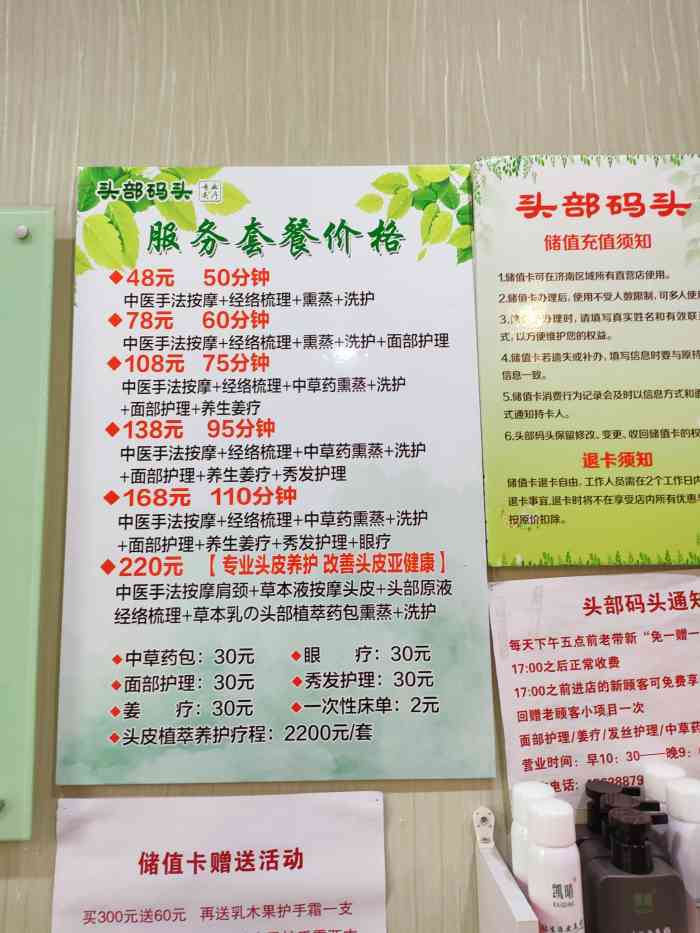 头部码头
服务套餐价格
48元 50分钟
中医手法按摩+经络梳理+熏蒸+洗护
78元 60分钟
中医手法按摩+经络梳理+熏蒸+洗护+面部护理
108元 75分钟
中医手法按摩+经络梳理+中草药熏蒸+洗护
+面部护理+养生姜疗
138元 95分钟
中医手法按摩+经络梳理+中草药熏蒸+洗护
+面部护理+养生姜疗+秀发护理
168元 110分钟
中医手法按摩+经络梳理+中草药熏蒸+洗护
+面部护理+养生姜疗+秀发护理+眼疗
220元 【专业头皮养护 改善头皮亚健康】
中医手法按摩肩颈+草本液按摩头皮+头部原液
经络梳理+草本乳の头部植萃药包熏蒸+洗护
中草药包：30元 眼 疗：30元
面部护理：30元 秀发护理：30元
姜 疗：30元 一次性床单：2元
头皮植萃养护疗程：2200元/套
储值卡赠送活动
买300元送60元 再送乳木果护手霜一支
头部码头
储值充值须知
1.储值卡可在济南区域所有直营店使用。
2.储值卡办理后，使用不受人数限制，可多人使
3.办理时，请填写真实姓名和有效联
式，以方便维护您的权益。
4.储值卡若遗失或补办，填写信息时要与原持
信息一致。
5.储值卡消费行为记录会及时以信息方式和
式通知持卡人。
6.头部码头保留修改、变更、收回储值卡的权
退卡须知
储值卡退卡自由，工作人员需在2个工作日内
退卡事宜，退卡时将不在享受店内所有优惠
按原价扣除。
头部码头通知
每天下午五点前老带新“免一赠一
17:00之后正常收费
17:00之前进店的新顾客可免费享
回赠老顾客小项目一次
面部护理/姜疗/发丝护理/中草药
营业时间：早10：30——晚9：
电话：
28879